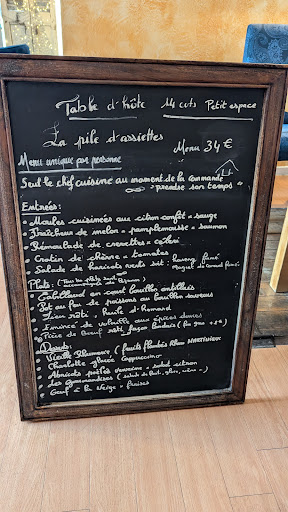 Table d'hôte 14 cuts Petit espace
La pile d'assiettes
Menu 34 €
Menu unique par personne
Seul le chef cuisine au moment de la commande
"prendre son temps"
Entrées:
• Moules cuisinées au citron confit + sauge
• Fraîcheur de melon + pamplemousse + saumon
• Rémoulade de crevettes + céleri
• Crotin de chèvre + tomates
• Salade de haricots verts soit: hareng fumé
Magret de canard fumé
Plats: (Tous les plats sont
accompagnés de légumes)
• Cabillaud en court bouillon antillais
• Pot au feu de poissons au bouillon savoureux
• Lieu rôti, huile d'homard
• Emincé de volaille aux épices douces
• Pièce de Boeuf rôti façon
Desserts:
• Vieille Rhumerie (fruits flambés Rhum MARTINIQUE)
• Charlotte glacée Cappuccino
• Abricots poêlés + sorbet citron
• Les Gourmandises
• Oeuf à la neige + fraises